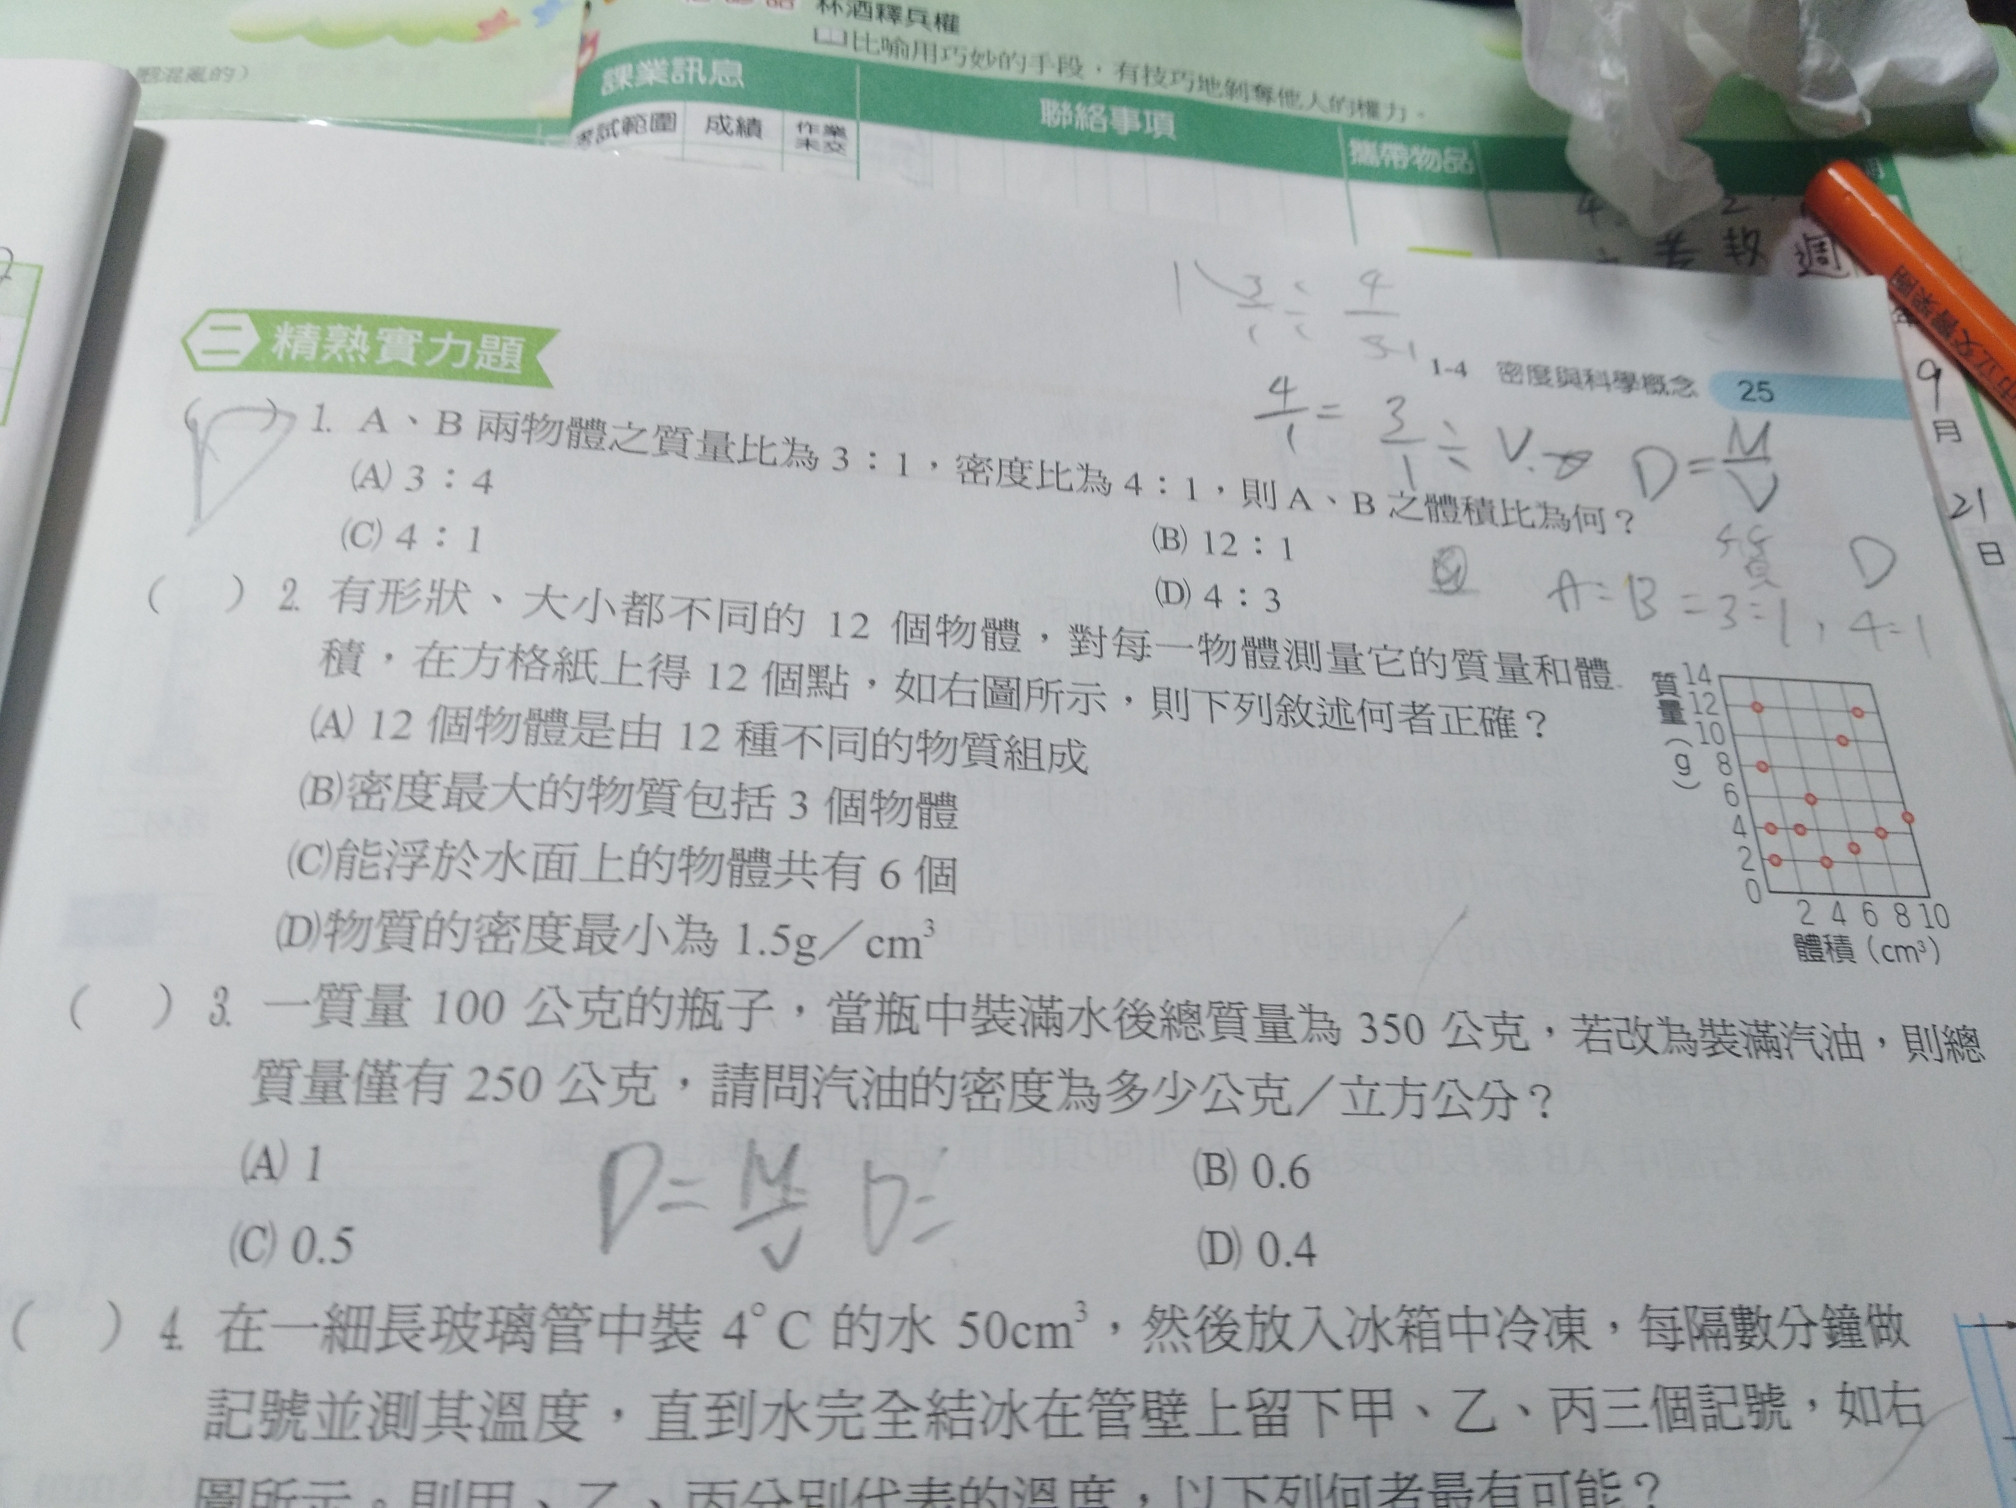 杯酒釋兵權
比喻用巧妙的手段，有技巧地剝奪他人的權力。
課業訊息
聯絡事項
考試範圍 成績 作業未交
攜帶物品
二 精熟實力題
1-4 密度與科學概念 25
4/1 = 3/1 ÷ V
D = M/V
9
月
21
日
( D ) 1. A、B 兩物體之質量比為 3：1，密度比為 4：1，則 A、B 之體積比為何？
(A) 3：4
(B) 12：1
(C) 4：1
(D) 4：3
質 D
A:B = 3:1, 4:1
( ) 2. 有形狀、大小都不同的 12 個物體，對每一物體測量它的質量和體
積，在方格紙上得 12 個點，如右圖所示，則下列敘述何者正確？
(A) 12 個物體是由 12 種不同的物質組成
(B)密度最大的物質包括 3 個物體
(C)能浮於水面上的物體共有 6 個
(D)物質的密度最小為 1.5g／cm³
質量(g)
14
12
10
8
6
4
2
0
2 4 6 8 10
體積（cm³）
( ) 3. 一質量 100 公克的瓶子，當瓶中裝滿水後總質量為 350 公克，若改為裝滿汽油，則總
質量僅有 250 公克，請問汽油的密度為多少公克／立方公分？
(A) 1
(B) 0.6
(C) 0.5
(D) 0.4
D = M/V D =
( ) 4. 在一細長玻璃管中裝 4°C 的水 50cm³，然後放入冰箱中冷凍，每隔數分鐘做
記號並測其溫度，直到水完全結冰在管壁上留下甲、乙、丙三個記號，如右
圖所示。則甲、乙、丙分別代表的溫度，以下列何者最有可能？